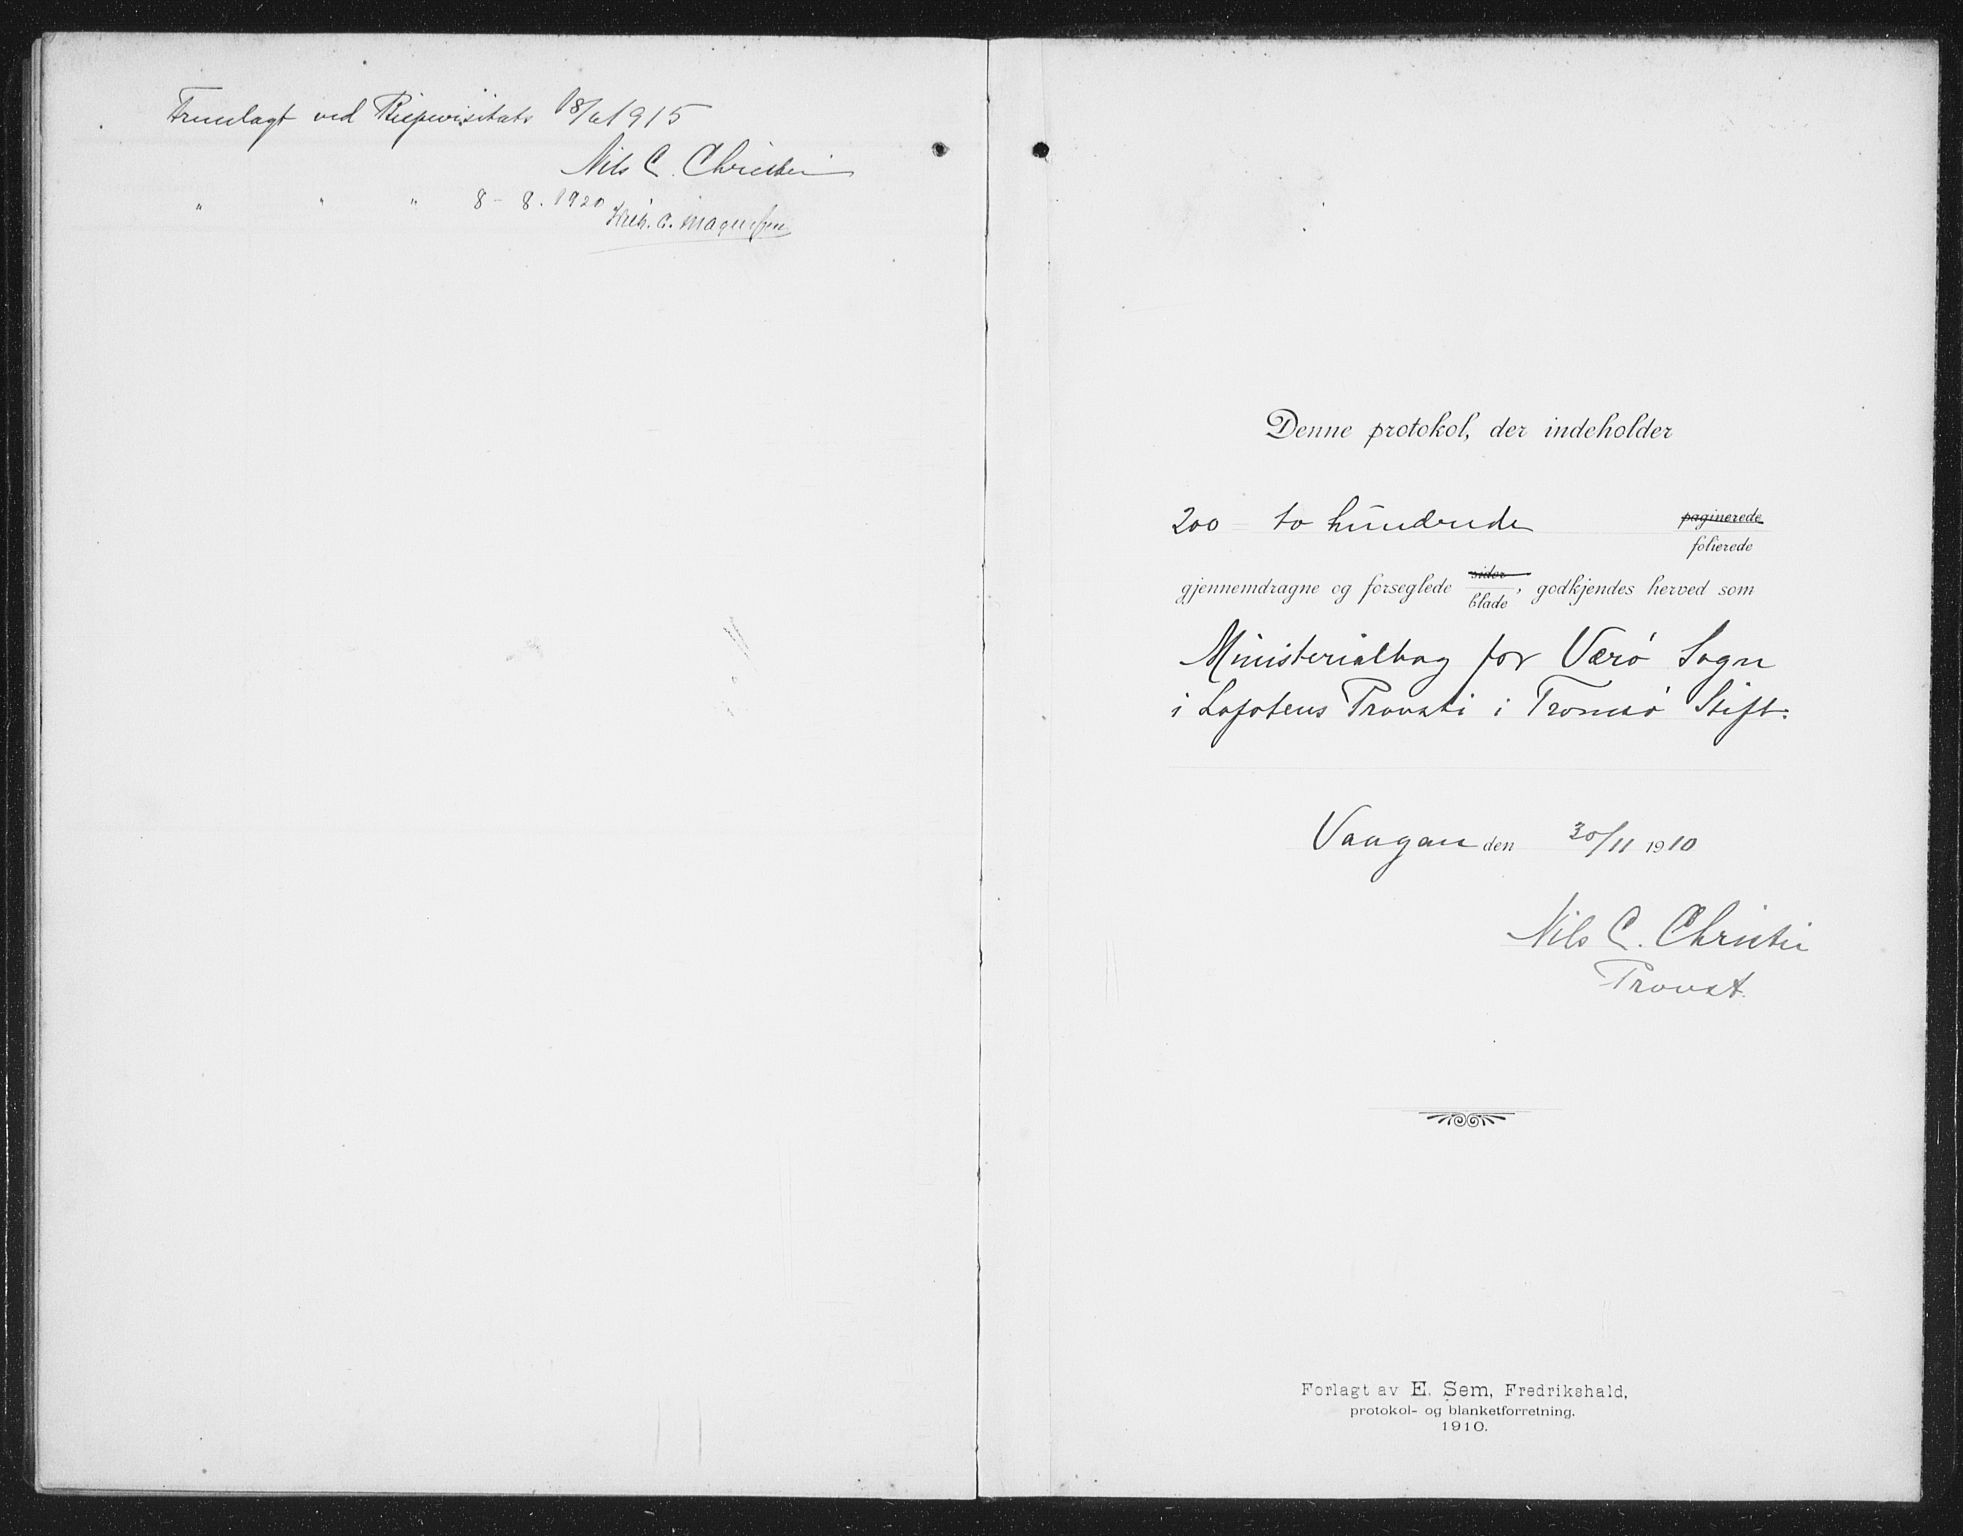 Fremlagt ved Bispevisitats 18/6 1915
Nils C. Christie
" " " 8-8. 1920
C. Magnussen
Denne protokol, der indeholder
200 to hundrede paginerede
folierede
gjennemdragne og forseglede sider/blade, godkjendes herved som
Ministerialbog for Værö Sogn
i Lofotens Provsti i Tromsö Stift.
Vaagan den 30/11 1910
Nils C. Christie
Provst.
Forlagt av E. Sem, Fredrikshald,
protokol- og blanketforretning.
1910.